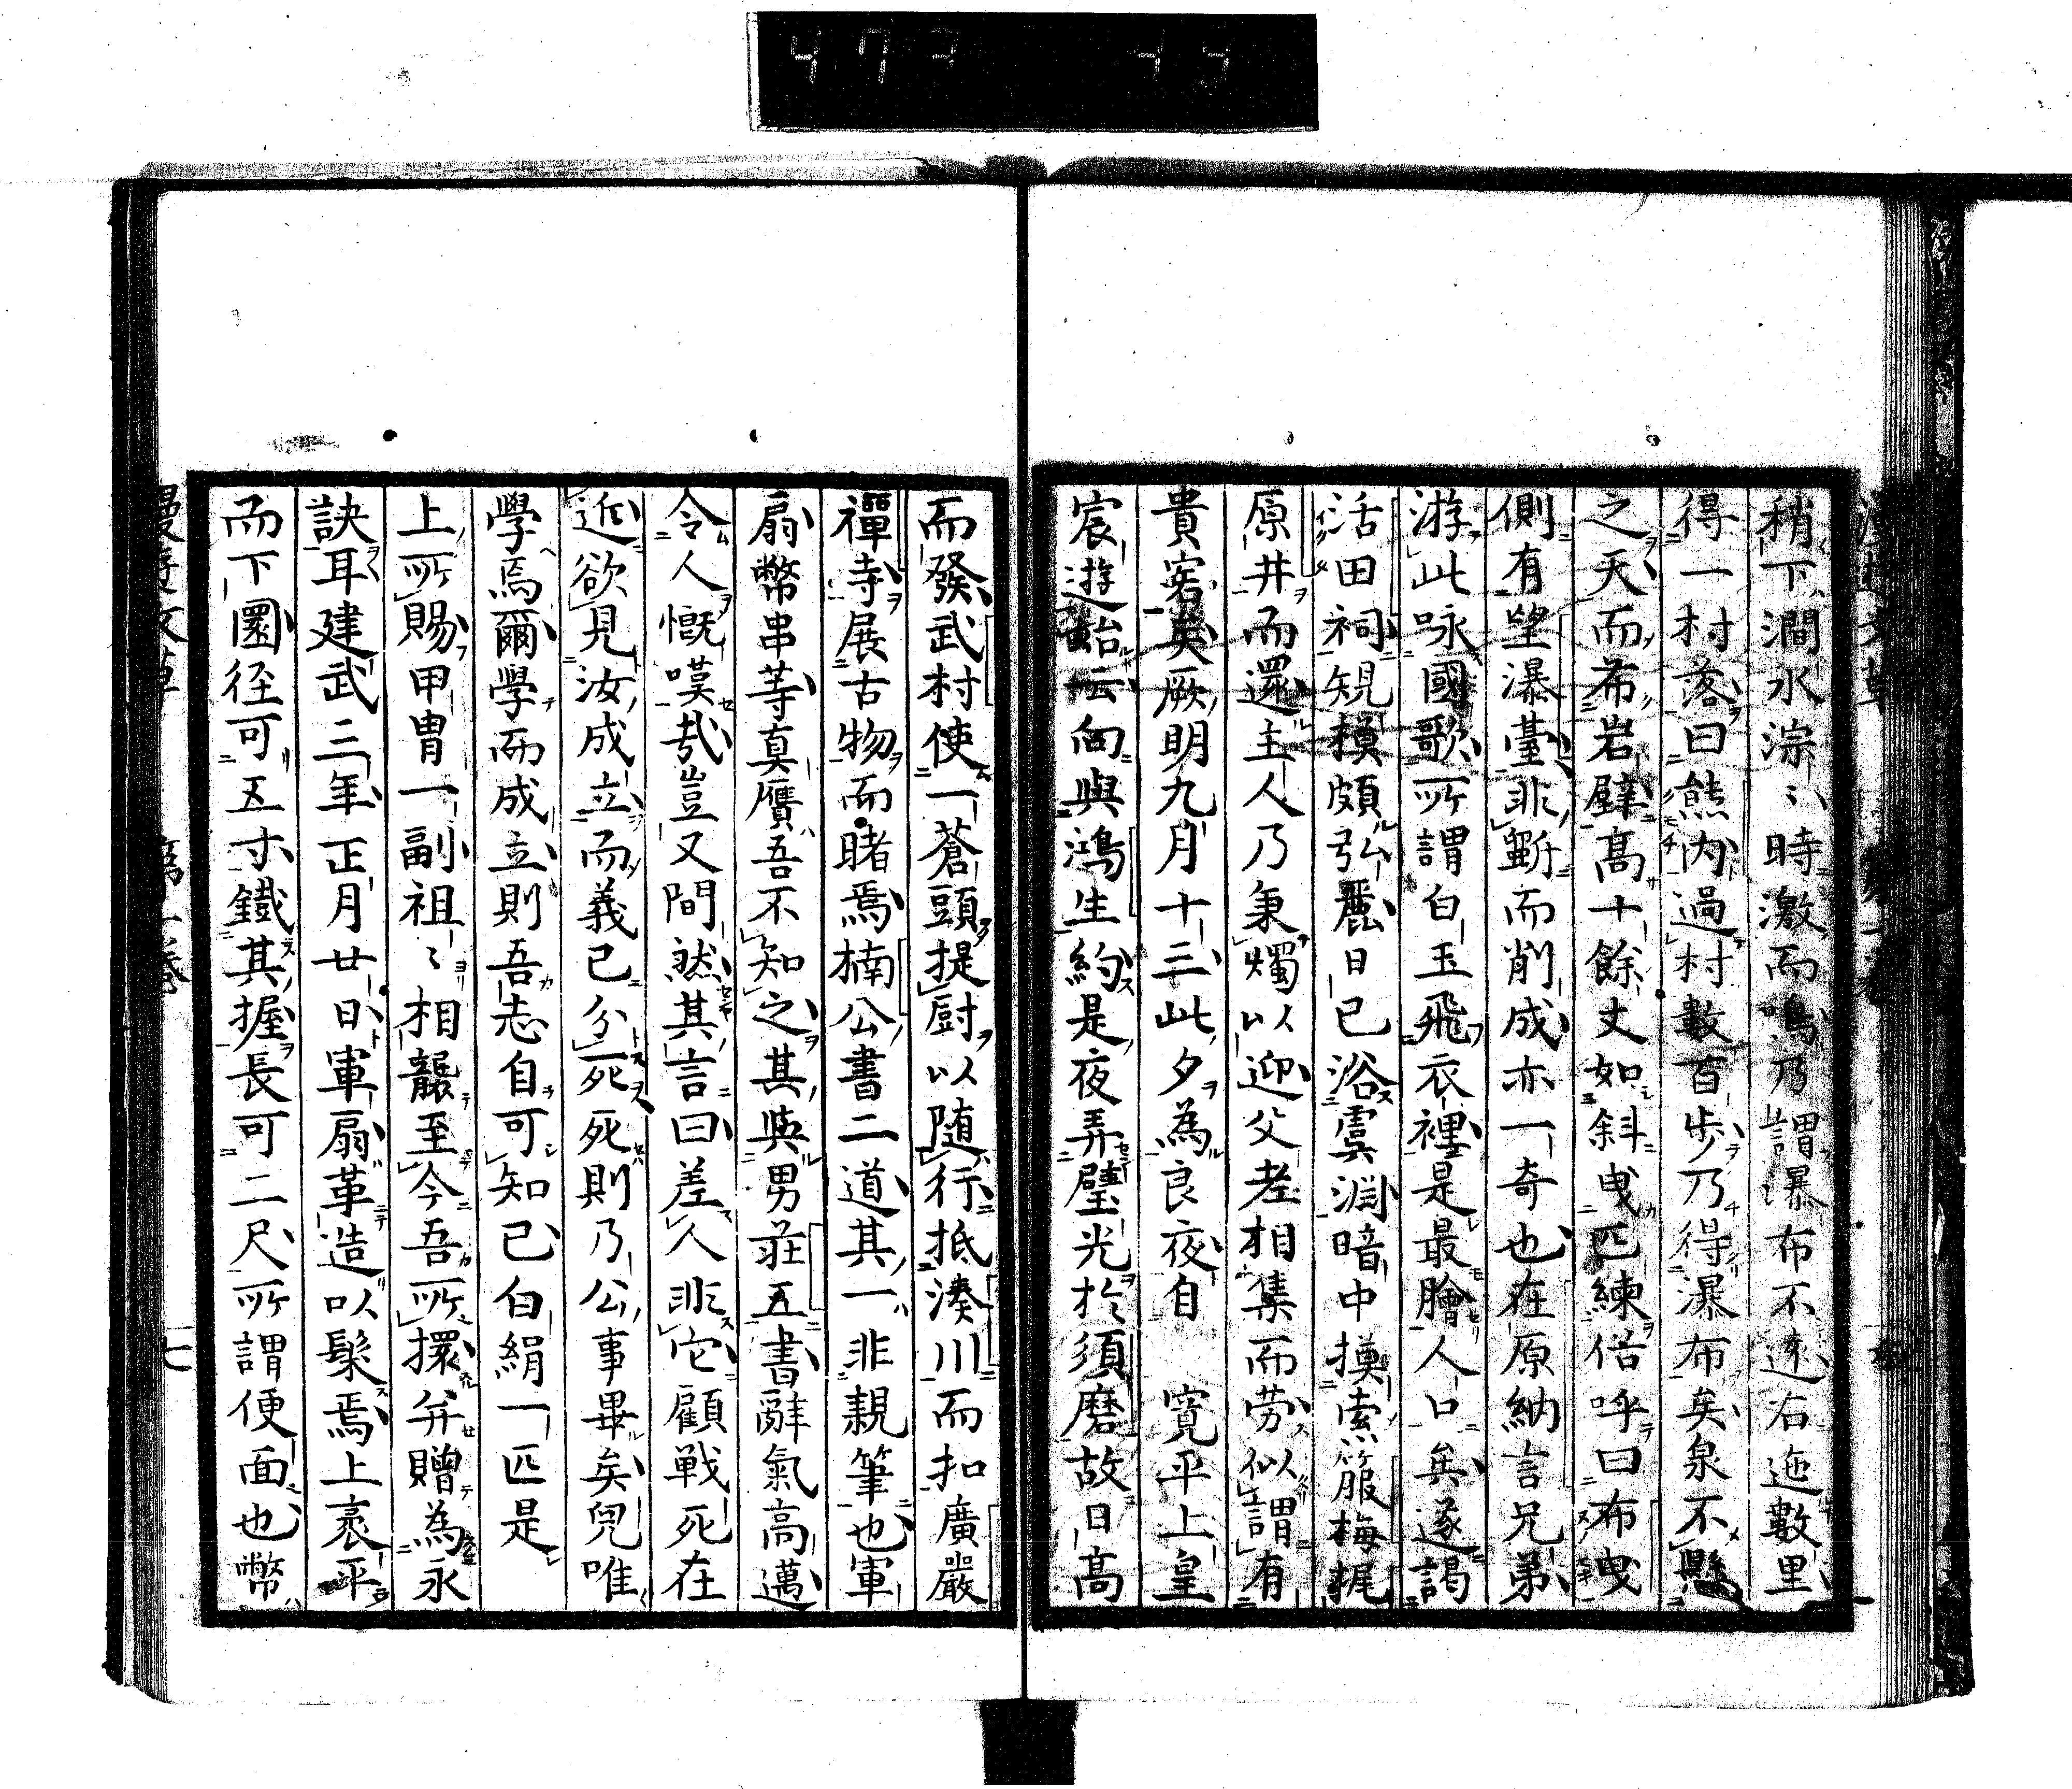 稍下澗水淙〻時激而鳴乃謂瀑布不遠右迤數里
得一村落曰熊内過村數百步乃得瀑布矣泉不懸
之天而布岩壁高十餘丈如斜曳匹練俗呼曰布曳
側有望瀑臺非斲而削成亦一奇也在原納言兄弟
游此咏國歌所謂白玉飛衣裡是最膾人口矣遂謁
活田祠規模頗弘麗日已浴虞淵暗中摸索箙梅梶
原井而還主人乃秉燭以迎父老相集而勞似謂有
貴客矣厥明九月十三此夕為良夜自 寛平上皇
宸遊始云向與鴻生約是夜弄璧光於須磨故日高
而發武村使一蒼頭提厨以随行抵湊川而扣廣嚴
禪寺展古物而睹焉楠公書二道其一非親筆也軍
扇幣串等真贋吾不知之其與男莊五書辭氣高邁
令人慨嘆哉豈又間然其言曰差人非它顧戦死在
近欲見汝成立而義已分死死則乃公事畢矣兒唯
學焉爾學而成立則吾志自可知已白絹一匹是
上所賜甲冑一副祖〻相襲至今吾所擐并贈為永
訣耳建武三年正月廿日軍扇革造以髹焉上衷平
而下圜径可五寸鐵其握長可二尺所謂便面也幣